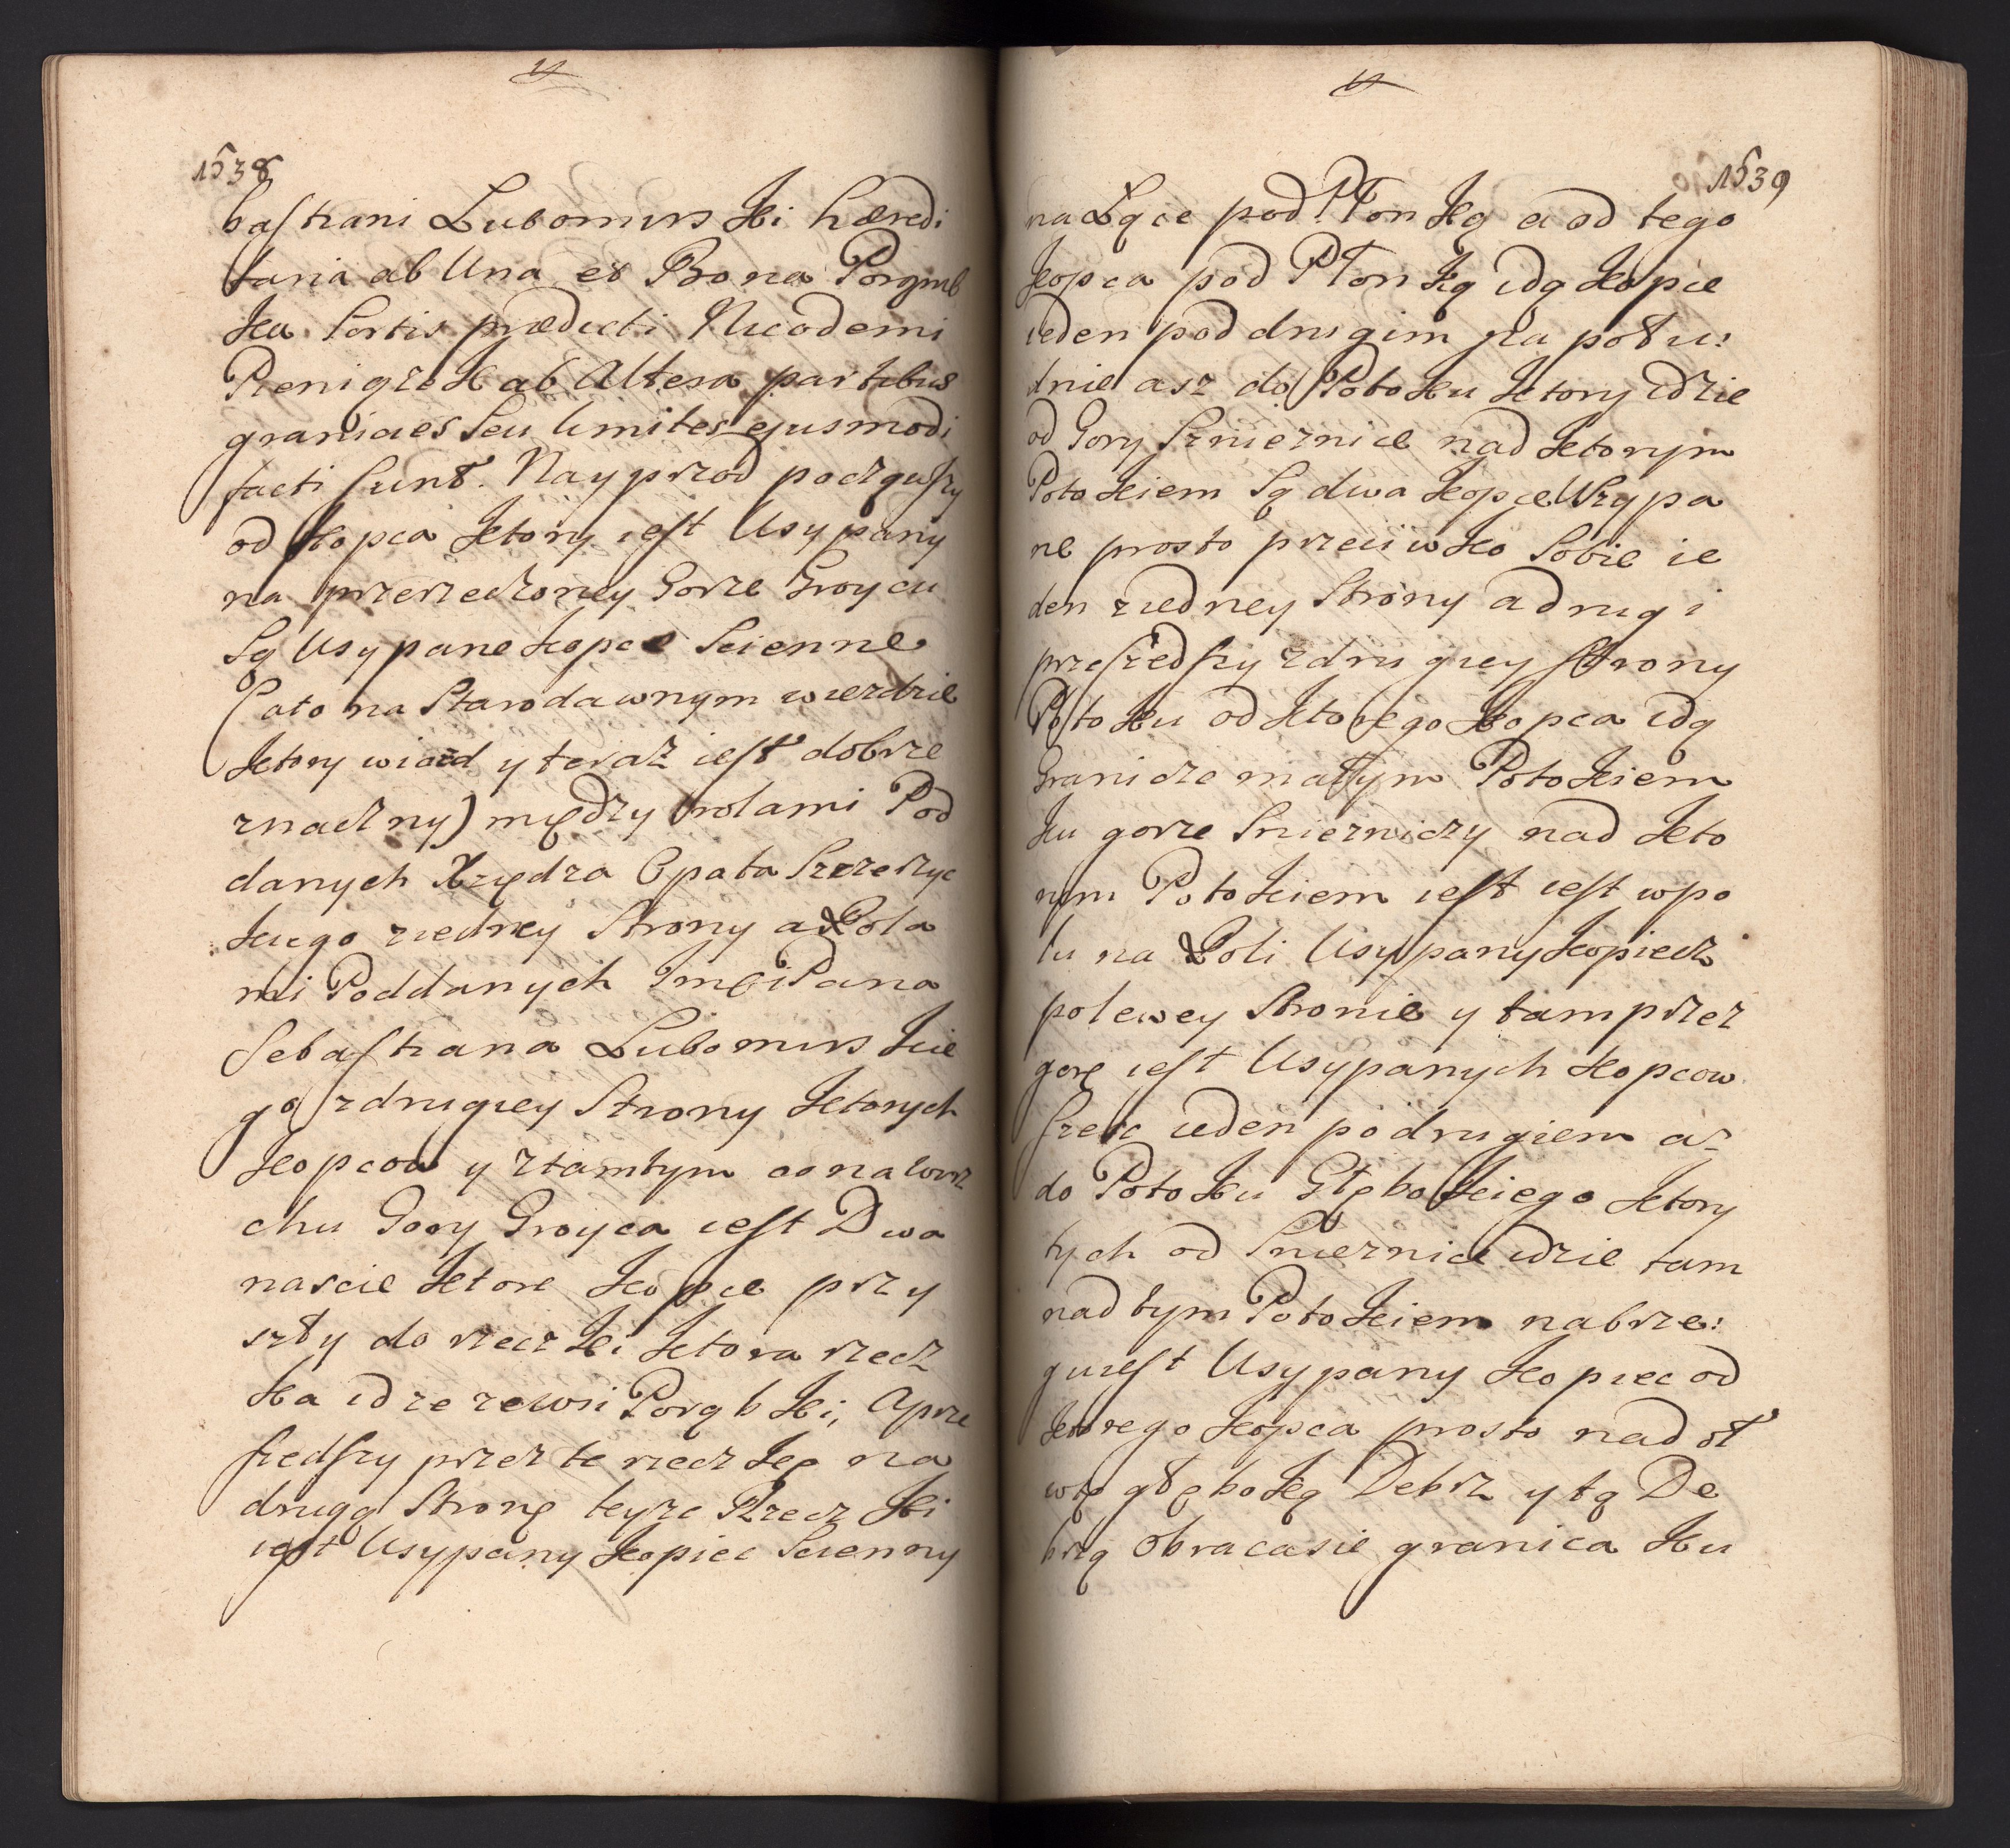 1538
bastiani Lubomirski hæredi
taria ab Una et Bona Porąmb
ka Sortis prædicti Nicodemi
Pieniązek ab Altera partibus
granicies seu limites ejusmodi
facti sunt. Nayprzod począwszy
od kopca ktory iest Usypany
na przerzeczoney Gorze Groycu
Są Usypane kopce Scienne
(ato na Starodawnym wiezdzie
ktory wiazd y teraz iest dobrze
znaczny) między rolami Pod
danych Xiędza Opata Szczerzyc
kiego ziedney Strony a Rola
mi Poddanych Jmci Pana
Sebastiana Lubomirskie
go zdrugiey Strony ktorych
kopcow y ztamtym co na wirz
chu Gory Groyca iest Dwa
nascie ktore kopce przy
szły do rzeczki ktora rzecz
ka idzie zewsi Porąbki, Aprze
szedszy przez te rzeczkę na
drugą Stronę teyze Rzeczki
iest Usypany kopiec Scienny
1539
na Łące pod Płonką a od tego
kopca pod Płonką idą kopce
ieden pod drugim na połu:
dnie asz do Potoku ktory idzie
od Gory Sznieznice nad ktorym
Potokiem Są dwa kopce Uszypa
ne prosto przeciwko Sobie ie
den ziedney Strony a drugi
przeszedszy zdrugiey strony
Potoku od ktorego kopca idą
Granicze małym Potokiem
ku gorze Snieznidzy nad kto
rym Potokiem iest iest wpo
lu na Roli Usypany kopiecz
polewey Stronie y tam przez
gorę iest Usypanych kopcow
szesc ieden podrugiem az
do Potoku Głębokiego ktory
tych od Snieznice idzie tam
nad tym Potokiem nabrze:
gu iest Usypany kopiec od
ktorego kopca prosto nad ół
wtę głęboką Debrz y tą De
brzą obraca sie granica ku